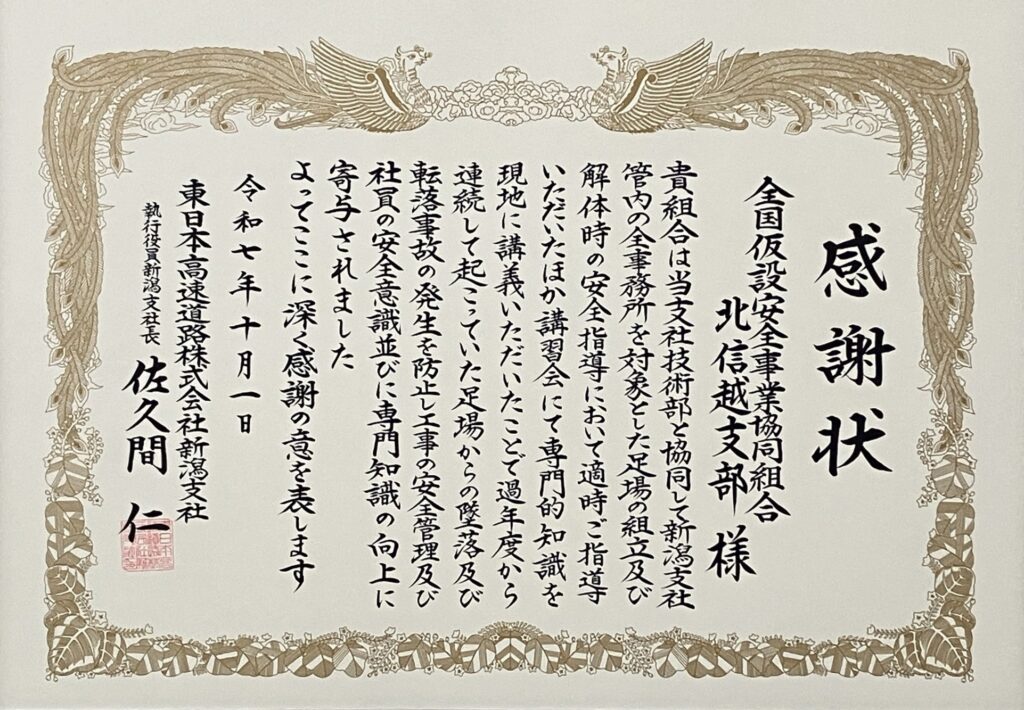 感謝状
全国仮設安全事業協同組合
北信越支部 様
貴組合は当支社技術部と協同して新潟支社
管内の全事務所を対象とした足場の組立及び
解体時の安全指導において適時ご指導
いただいたほか講習会にて専門的知識を
現地に講義いただいたことで過年度から
連続して起こっていた足場からの墜落及び
転落事故の発生を防止し工事の安全管理及び
社員の安全意識並びに専門知識の向上に
寄与されました
よってここに深く感謝の意を表します
令和七年十月一日
東日本高速道路株式会社新潟支社
執行役員新潟支社長 佐久間 仁